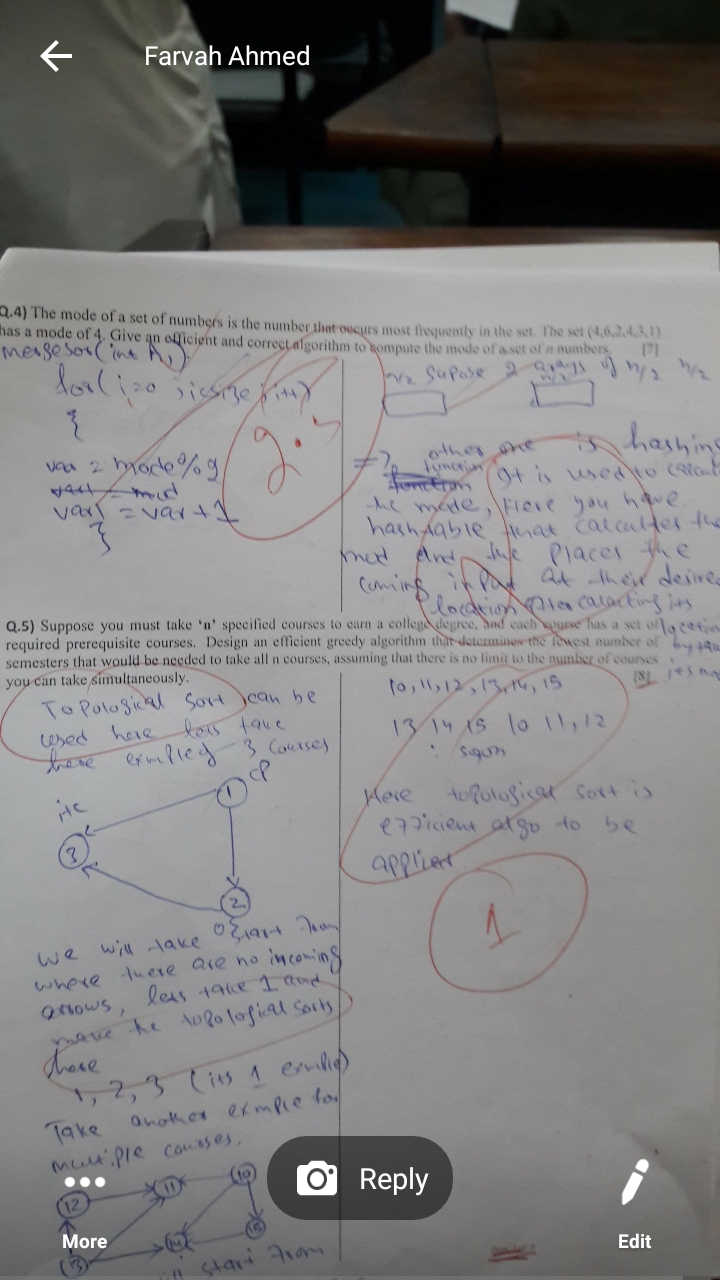 Farvah Ahmed
Q.4) The mode of a set of numbers is the number that occurs most frequently in the set. The set (4,6,2,4,3,1)
has a mode of 4. Give an efficient and correct algorithm to compute the mode of a set of n numbers. [7]
mergeSor(int A,)
for(i=0 ;i<size;i++)
{
var = mode%9
var1 = var+1
}
2.5
n/2 Supose 2 arrays of n/2 n/2
=> other one is hashing
function It is used to calculate
the mode, Here you have
hashtable that calcultes the
mod and the places the
coming input at their desired
location after
Q.5) Suppose you must take 'n' specified courses to earn a college degree, and each course has a set of
required prerequisite courses. Design an efficient greedy algorithm that determines the lowest number of
semesters that would be needed to take all n courses, assuming that there is no limit to the number of courses
you can take simultaneously. [8]
Topological Sort can be
used here lets take
here exmple of 3 courses
CP
1
3
2
We will take start from
where there are no incoming
arrows, lets take 1 and
make the topological sorts
here
1, 2, 3 (its 1 exmple)
Take another exmple for
multiple courses.
12
11
10
13
14
15
start from
10,11,12,13,14,15
13 14 15 10 11,12
Here topological sort is
efficient algo to be
applied
1
Reply
More
Edit